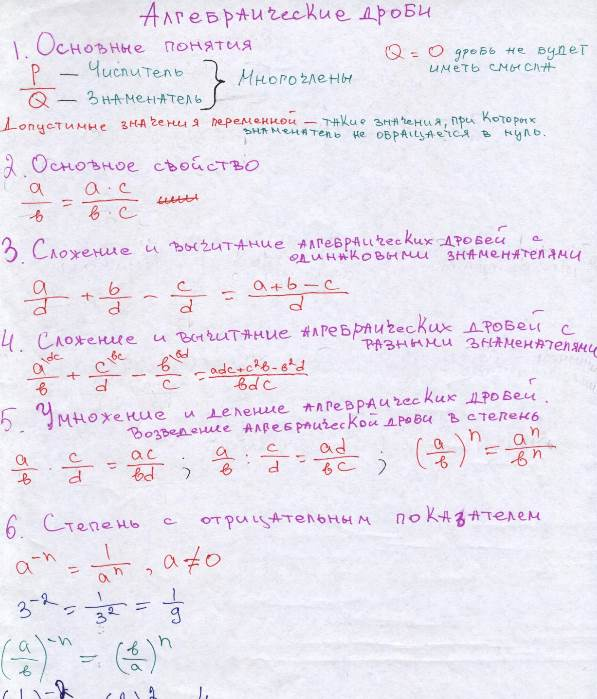 Алгебраические дроби
1. Основные понятия
P/Q — Числитель
— Знаменатель } Многочлены
Q = 0 дробь не будет
иметь смысла
Допустимые значения переменной — такие значения, при которых
знаменатель не обращается в нуль.
2. Основное свойство
a/в = a·c/в·c
3. Сложение и вычитание алгебраических дробей с
одинаковыми знаменателями
a/d + b/d − c/d = a+b−c/d
4. Сложение и вычитание алгебраических дробей с
разными знаменателями
a\dc/в + c\вc/d − в\вd/c = adc+c²в−в²d/вdc
5. Умножение и деление алгебраических дробей.
Возведение алгебраической дроби в степень
a/в · c/d = ac/вd ; a/в : c/d = ad/вc ; (a/в)ⁿ = aⁿ/вⁿ
6. Степень с отрицательным показателем
a⁻ⁿ = 1/aⁿ , a≠0
3⁻² = 1/3² = 1/9
(a/в)⁻ⁿ = (в/a)ⁿ